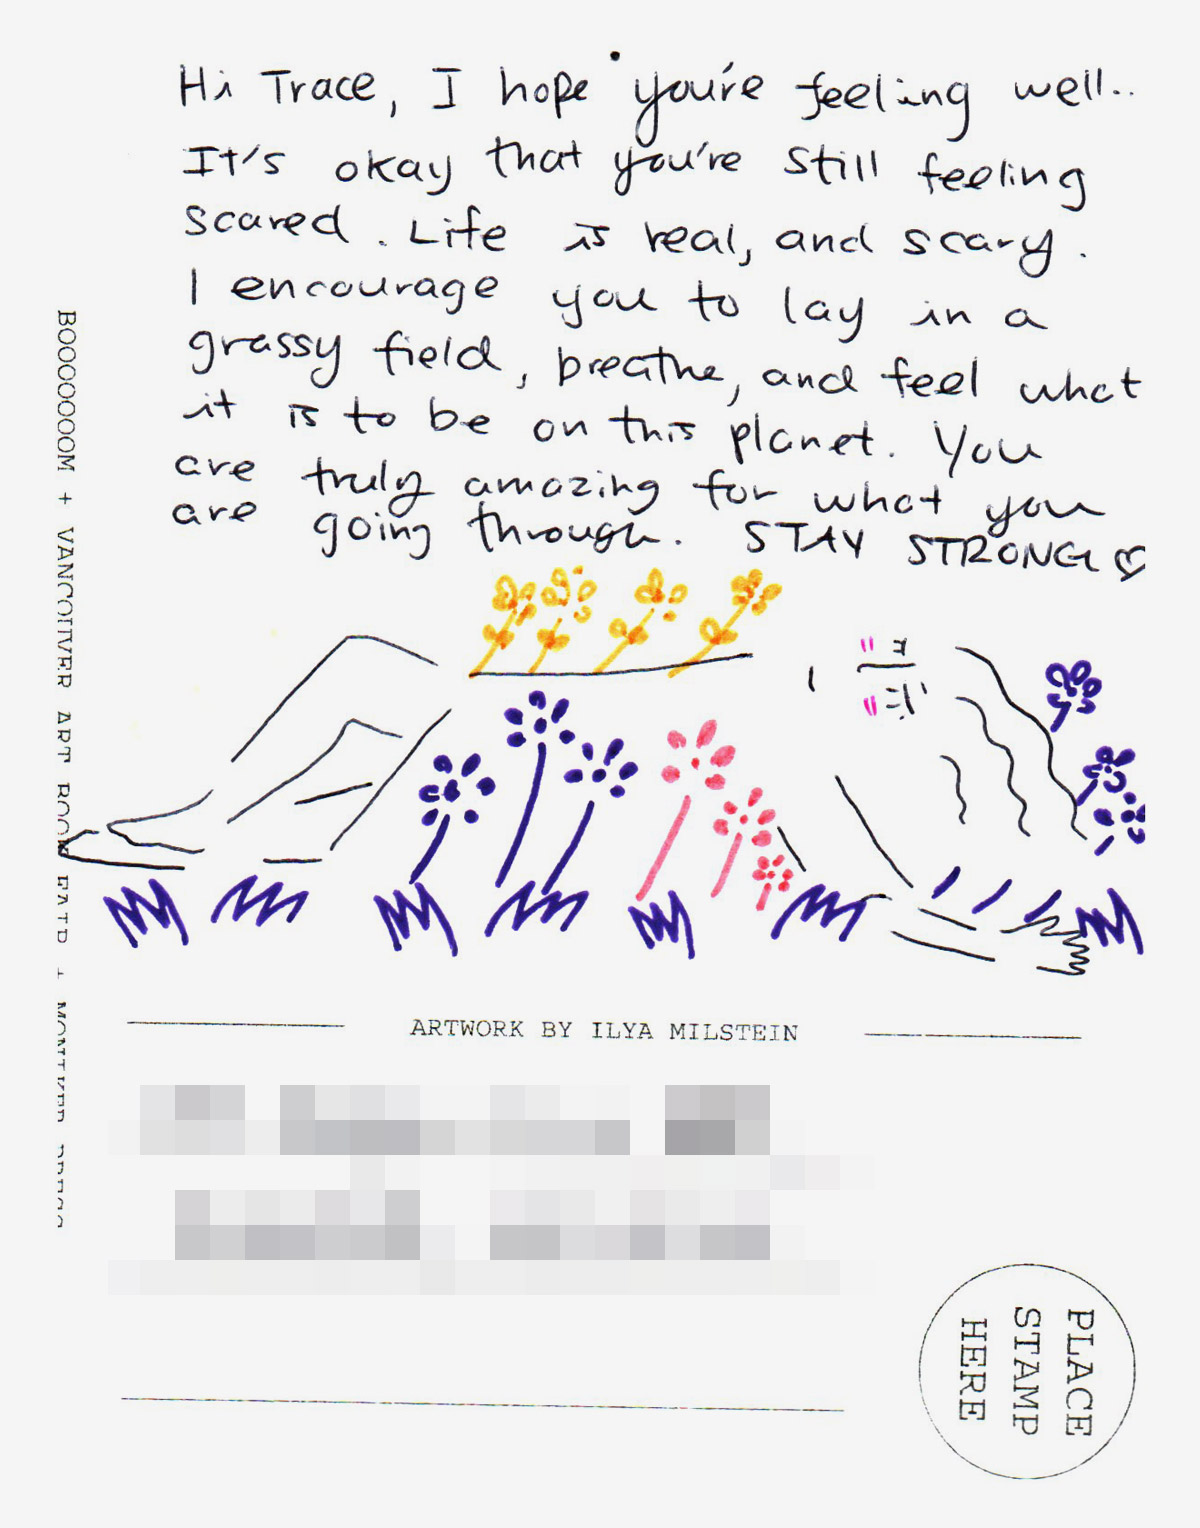 Hi Trace, I hope you're feeling well..
It's okay that you're still feeling
scared. Life is real, and scary.
I encourage you to lay in a
grassy field, breathe, and feel what
it is to be on this planet. You
are truly amazing for what you
are going through. STAY STRONG ♡
BOOOOOOOM + VANCOUVER ART BOOK FAIR + MONIKER PRESS
ARTWORK BY ILYA MILSTEIN
PLACE
STAMP
HERE